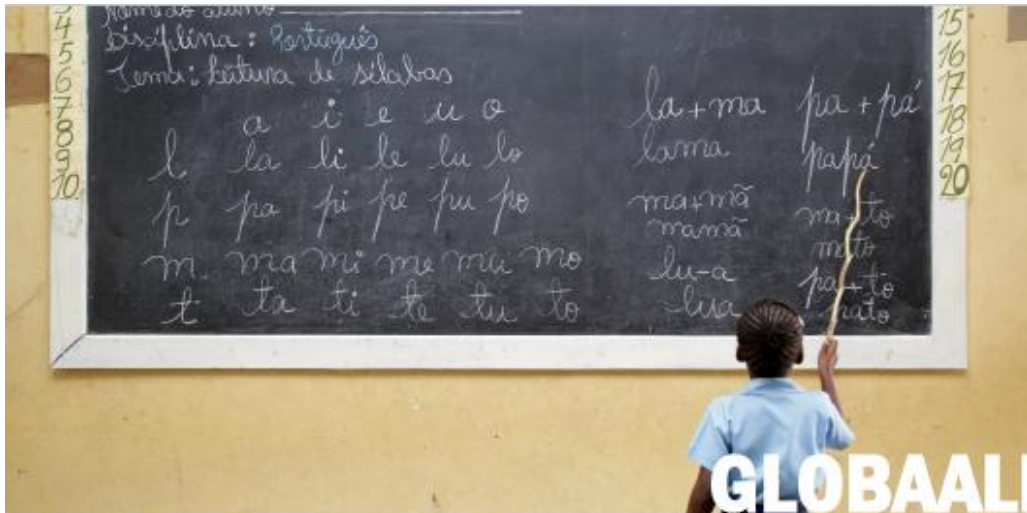 4
5
6
7
8
9
10
Nome do aluno
Disciplina: Português
Tema: Leitura de sílabas
a i e u o
l la li le lu lo
p pa pi pe pu po
m ma mi me mu mo
t ta ti te tu to
la+ma
lama
ma+mã
mamã
lu-a
lua
pa+pá
papá
ma+to
mato
pa+to
pato
15
16
17
18
19
20
GLOBAAL